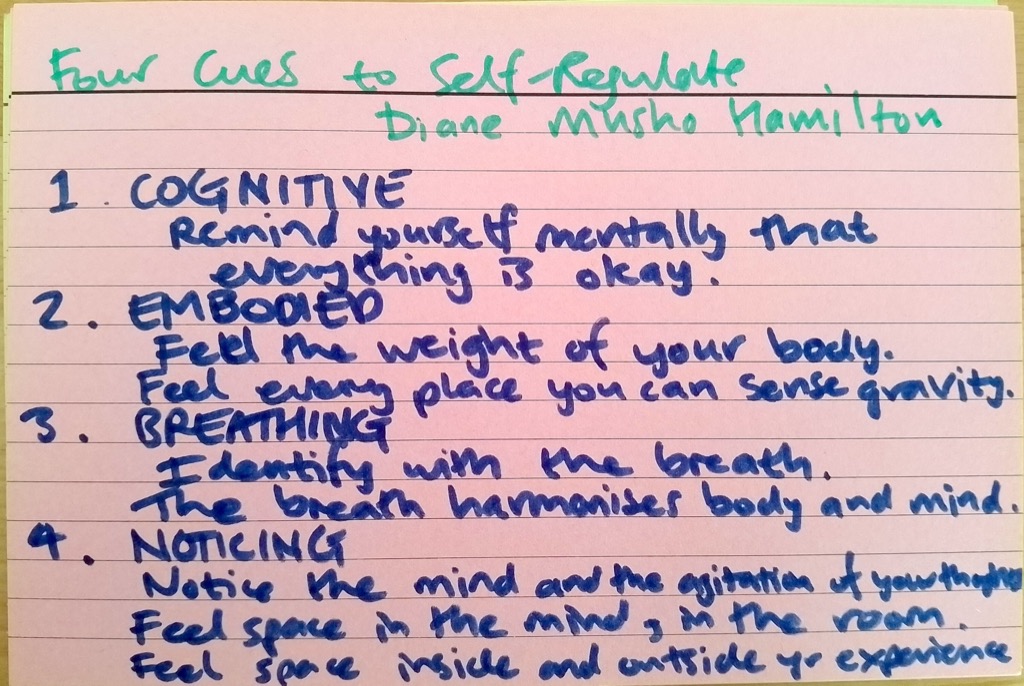 Four Cues to Self-Regulate
Diane Musho Hamilton
1. COGNITIVE
Remind yourself mentally that
everything is okay.
2. EMBODIED
Feel the weight of your body.
Feel every place you can sense gravity.
3. BREATHING
Identify with the breath.
The breath harmonises body and mind.
4. NOTICING
Notice the mind and the agitation of your thoughts
Feel space in the mind, in the room.
Feel space inside and outside yr experience